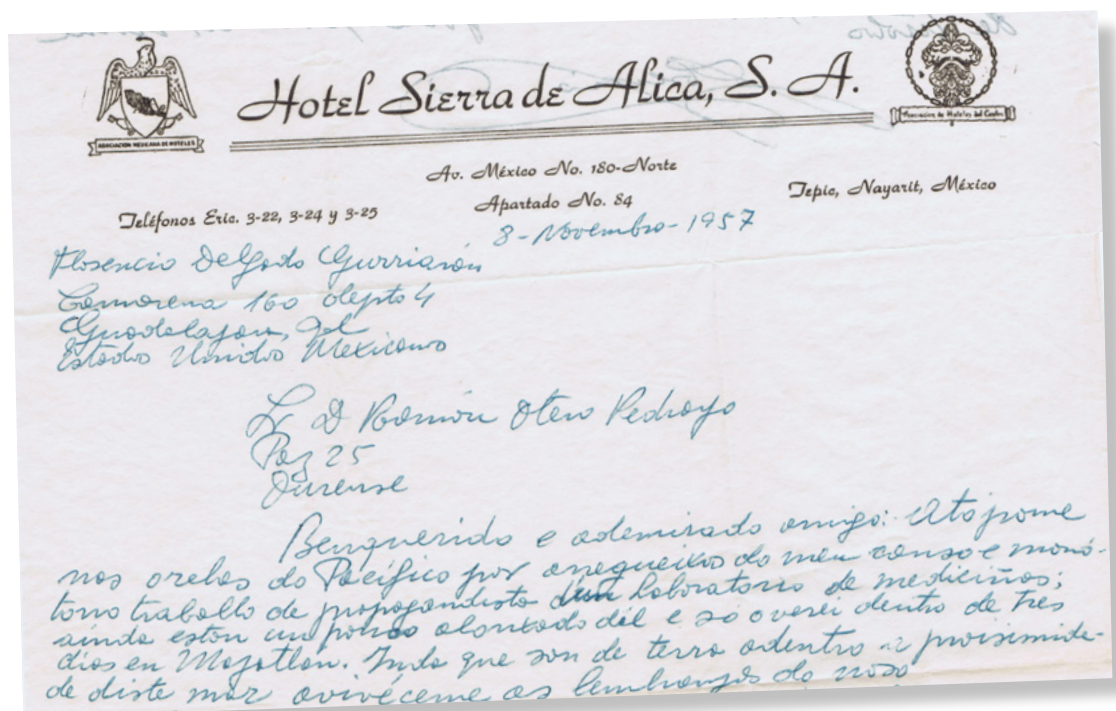 ASOCIACION MEXICANA DE HOTELES
Hotel Sierra de Alica, S. A.
Av. México No. 180-Norte
Apartado No. 84
Tepic, Nayarit, México
Teléfonos Eric. 3-22, 3-24 y 3-25
8-Novembro-1957
Florencio Delgado Gurriarán
Camarena 160 depto 4
Guadalajara, Jal
Estados Unidos Mexicanos
Sr D Ramón Otero Pedrayo
Paz 25
Ourense
Benquerido e ademirado amigo: Atópome
nas orelas do Pacífico por anequeixos do meu canso e monó-
tono traballo de propagandista dun laboratorio de mediciñas;
ainda estou un pouco alonxado dél e só o verei dentro de tres
dias en Mazatlan. Inda que son de terra adentro a proisimida-
de diste mar avivéceme as lembranzas do noso